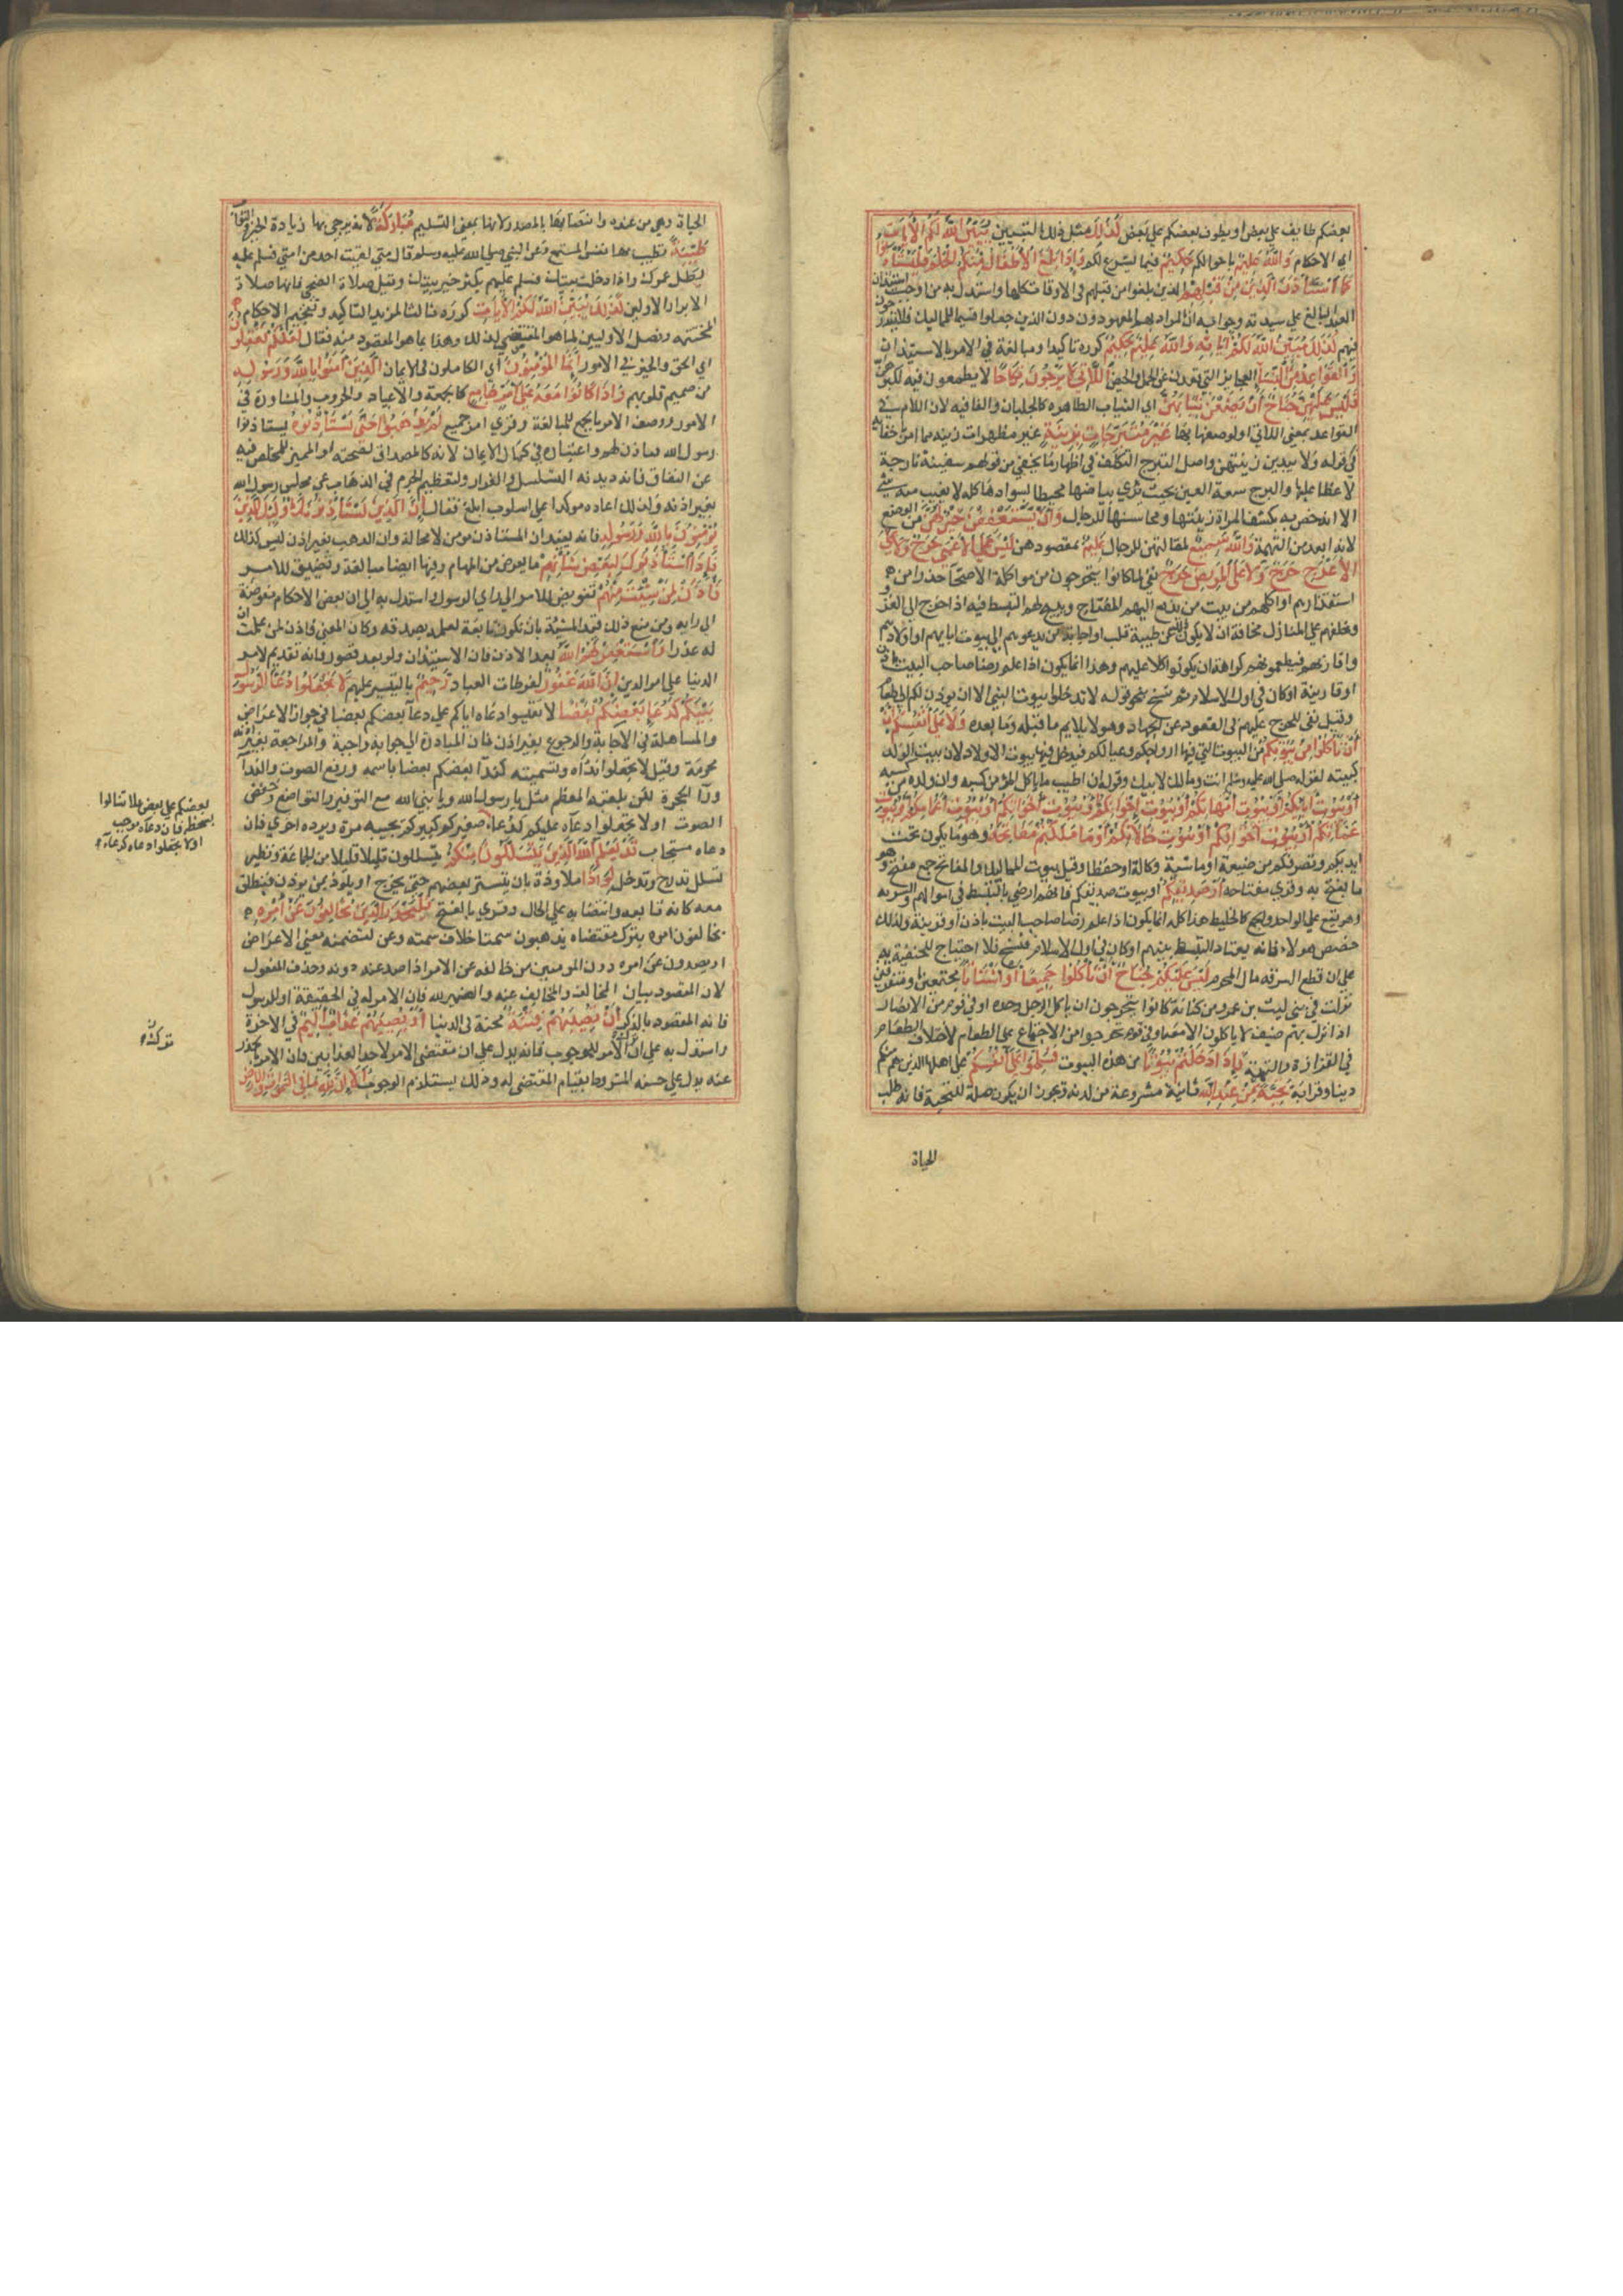 بعضكم طايف علي بعض او يطوف بعضكم علي بعض كَذَلِكَ مثل ذلك التبيين يُبَيِّنُ اللَّهُ لَكُمُ الْآيَاتِ
اي الاحكام وَاللَّهُ عَلِيمٌ باحوالكم حَكِيمٌ فيما شرع لكم وَإِذَا بَلَغَ الْأَطْفَالُ مِنْكُمُ الْحُلُمَ فَلْيَسْتَأْذِنُوا
كَمَا اسْتَأْذَنَ الَّذِينَ مِنْ قَبْلِهِمْ الذين بلغوا من قبلهم في الاوقات كلها واستدل به من اوجب استيذان
العبد البالغ علي سيدته وجوابه ان المراد بهم المعهودون دون الذين جعلوا قسيما للمماليك فلا يندرجون
فيهم كَذَلِكَ يُبَيِّنُ اللَّهُ لَكُمْ آيَاتِهِ وَاللَّهُ عَلِيمٌ حَكِيمٌ كرره تاكيدا ومبالغة في الامر بالاستيذان
وَالْقَوَاعِدُ مِنَ النِّسَاءِ العجايز التي قعدن عن الحمل والحيض اللَّاتِي لَا يَرْجُونَ نِكَاحًا لا يطمعون فيه لكبرهن
فَلَيْسَ عَلَيْهِنَّ جُنَاحٌ أَنْ يَضَعْنَ ثِيَابَهُنَّ اي الثياب الظاهره كالجلباب والفا فيه لان اللام في
القواعد بمعني اللاتي او لوصفها بها غَيْرَ مُتَبَرِّجَاتٍ بِزِينَةٍ غير مظهرات زينة مما امرن باخفايه
في قوله ولا يبدين زينتهن واصل التبرج التكلف في اظهار ما يخفي من قولهم سفينة بارجة
لا غطا عليها والبرج سعة العين بحيث يري بياضها محيطا بسوادها كله لا يغيب منه شي
الا انه خص به بكشف المراة زينتها ومحاسنها للرجال وَأَنْ يَسْتَعْفِفْنَ خَيْرٌ لَهُنَّ من الوضع
لانه ابعد من التهمة وَاللَّهُ سَمِيعٌ لمقالتهن للرجال عَلِيمٌ بمقصودهن لَيْسَ عَلَى الْأَعْمَى حَرَجٌ وَلَا عَلَى
الْأَعْرَجِ حَرَجٌ وَلَا عَلَى الْمَرِيضِ حَرَجٌ نفي لما كانوا يتحرجون من مواكلة الاصحا حذرا من
استقذارهم او اكلهم من بيت من يدفع اليهم المفتاح ويبيح لهم التبسط فيه اذا خرج الي الغزو
وخلفهم علي المنازل مخافة ان لا يكون ذلك عن طيبة قلب او اجابة من يدعوهم الي بيوت ابايهم او اولادهم
واقاربهم فيطعمونهم كراهة ان يكونوا كلا عليهم وهذا انما يكون اذا علم رضا صاحب البيت باذن
او قرينة او كان في اول الاسلام ثم نسخ بنحو قوله لا تدخلوا بيوت النبي الا ان يوذن لكم الي طعام
وقيل نفي للحرج عليهم في القعود عن الجهاد وهو لا يلايم ما قبله وما بعده وَلَا عَلَى أَنْفُسِكُمْ
أَنْ تَأْكُلُوا مِنْ بُيُوتِكُمْ من البيوت التي فيها ازواجكم وعيالكم فيدخل فيها بيوت الاولاد لان بيت الولد
كبيته لقوله صلي الله عليه وسلم انت ومالك لابيك وقوله ان اطيب ما ياكل المؤمن من كسبه وان ولده من كسبه
أَوْ بُيُوتِ آبَائِكُمْ أَوْ بُيُوتِ أُمَّهَاتِكُمْ أَوْ بُيُوتِ إِخْوَانِكُمْ أَوْ بُيُوتِ أَخَوَاتِكُمْ أَوْ بُيُوتِ أَعْمَامِكُمْ أَوْ بُيُوتِ
عَمَّاتِكُمْ أَوْ بُيُوتِ أَخْوَالِكُمْ أَوْ بُيُوتِ خَالَاتِكُمْ أَوْ مَا مَلَكْتُمْ مَفَاتِحَهُ وهو ما يكون تحت
ايديكم وتصرفكم من ضيعة او ماشية وكالة او حفظا وقيل بيوت المماليك والمفاتح جمع مفتح وهو
ما يفتح به وقري مفتاحه أَوْ صَدِيقِكُمْ او بيوت صديقكم فانهم ارضي بالتبسط في اموالهم واسر به
وهو يقع علي الواحد والجمع كالخليط هذا كله انما يكون اذا علم رضا صاحب البيت باذن او قرينة ولذلك
خصص هولاء فانه يعتاد التبسط بينهم او كان في اول الاسلام فنسخ فلا احتجاج للحنفية به
علي ان لا قطع لسرقه مال المحرم لَيْسَ عَلَيْكُمْ جُنَاحٌ أَنْ تَأْكُلُوا جَمِيعًا أَوْ أَشْتَاتًا مجتمعين او متفرقين
نزلت في بني ليث بن عمرو من كنانة كانوا يتحرجون ان ياكل الرجل وحده او في قوم من الانصار
اذا نزل بهم ضيف لا ياكلون الا معه او في قوم تحرجوا من الاجتماع علي الطعام لاختلاف الطعام
في القزازة والنهمة فَإِذَا دَخَلْتُمْ بُيُوتًا من هذه البيوت فَسَلِّمُوا عَلَى أَنْفُسِكُمْ علي اهلها الذين هم منكم
دينا وقرابة تَحِيَّةً مِنْ عِنْدِ اللَّهِ ثابتة مشروعة من لدنه ويجوز ان يكون صلة للتحية فانه طلب
الحياة
الحياة وهي من عنده وانتصابها بالمصدر لانها بمعني التسليم مُبَارَكَةً لانه يرجي بها زيادة الخير والثواب
طَيِّبَةً تطيب بها نفس المستمع وعن النبي صلي الله عليه وسلم قال متي لقيت احدا من امتي فسلم عليه
يطل عمرك واذا دخلت بيتك فسلم عليهم يكثر خير بيتك وقيل صلاة الضحي فانها صلاة
الابرار الاولين كَذَلِكَ يُبَيِّنُ اللَّهُ لَكُمُ الْآيَاتِ كرره ثالثا لمزيد التاكيد وتفخيم الاحكام
المختتمه وفصل الاوليين بما هو المقتضي لذلك وهذا بما هو المقصود منه فقال لَعَلَّكُمْ تَعْقِلُونَ
اي الحق والخير في الامور إِنَّمَا الْمُؤْمِنُونَ اي الكاملون في الايمان الَّذِينَ آمَنُوا بِاللَّهِ وَرَسُولِهِ
من صميم قلوبهم وَإِذَا كَانُوا مَعَهُ عَلَى أَمْرٍ جَامِعٍ كالجمعة والاعياد والحروب والمشاورة في
الامور ووصف الامر بالجمع للمبالغة وقري امر جميع لَمْ يَذْهَبُوا حَتَّى يَسْتَأْذِنُوهُ يستاذنوا
رسول الله فياذن لهم واعتباره في كمال الايمان لانه كالمصداق لصحته او المميز للمخلص فيه
عن النفاق فانه ديدنه التسلل والفرار ولتعظيم الجرم في الذهاب عن مجلس رسول الله
بغير اذنه ولذلك اعاده موكدا علي اسلوب ابلغ فقال إِنَّ الَّذِينَ يَسْتَأْذِنُونَكَ أُولَئِكَ الَّذِينَ
يُؤْمِنُونَ بِاللَّهِ وَرَسُولِهِ فانه يفيد ان المستاذن مومن لا محالة وان الذاهب بغير اذن ليس كذلك
فَإِذَا اسْتَأْذَنُوكَ لِبَعْضِ شَأْنِهِمْ ما يعرض من المهام وفيها ايضا مبالغة وتضييق للامر
فَأْذَنْ لِمَنْ شِئْتَ مِنْهُمْ تفويض للامر الي راي الرسول واستدل به الي ان بعض الاحكام مفوضة
الي رايه ومن منع ذلك قيد المشية بان تكون تابعة لعلمه بصدقه وكان المعني فاذن لمن علمت ان
له عذرا وَاسْتَغْفِرْ لَهُمُ اللَّهَ بعد الاذن فان الاستيذان ولو بعذر قصور فانه تقديم لامر
الدنيا علي امر الدين إِنَّ اللَّهَ غَفُورٌ لفرطات العباد رَحِيمٌ بالتيسير عليهم لَا تَجْعَلُوا دُعَاءَ الرَّسُولِ
بَيْنَكُمْ كَدُعَاءِ بَعْضِكُمْ بَعْضًا لا تقيسوا دعاه اياكم علي دعا بعضكم بعضا في جواز الاعراض
والمساهلة في الاجابة والرجوع بغير اذن فان المبادرة الي جوابه واجبة والمراجعة بغير اذنه
محرمة وقيل لا تجعلوا نداه وتسميته كندا بعضكم بعضا باسمه ورفع الصوت والندا
ورا الحجرة لكن بلقبه المعظم مثل يا رسول الله ويا نبي الله مع التوقير والتواضع وخفض
الصوت او لا تجعلوا دعاه عليكم كدعاء صغيركم كبيركم يجيبه مرة ويرده اخري فان
دعاه مستجاب قَدْ يَعْلَمُ اللَّهُ الَّذِينَ يَتَسَلَّلُونَ مِنْكُمْ يتسللون قليلا قليلا من الجماعة ونظير
تسلل تدرج وتدخل لِوَاذًا ملاوذة بان يتستر بعضهم حتي يخرج او يلوذ بمن يوذن فينطلق
معه كانه تابعه وانتصابه علي الحال وقري بالفتح فَلْيَحْذَرِ الَّذِينَ يُخَالِفُونَ عَنْ أَمْرِهِ
يخالفون امره بترك مقتضاه يذهبون سمتا خلاف سمته وعن لتضمنه معني الاعراض
او يصدون عن امره دون المومنين من خالفه عن الامر اذا صد عنه دونه وحذف المفعول
لان المقصود بيان المخالف والمخالف عنه والضمير لله فان الامر له في الحقيقة او للرسول
فانه المقصود بالذكر أَنْ تُصِيبَهُمْ فِتْنَةٌ محنة في الدنيا أَوْ يُصِيبَهُمْ عَذَابٌ أَلِيمٌ في الاخرة
واستدل به علي ان الامر للوجوب فانه يدل علي ان ترك مقتضي الامر لاحد العذابين فان الامر بالحذر
عنه يدل علي حسنه المشروط بقيام المقتضي له وذلك يستلزم الوجوب أَلَا إِنَّ لِلَّهِ مَا فِي السَّمَوَاتِ وَالْأَرْضِ
بعضكم علي بعض فلا تبالوا
بسخطه فان دعاه موجب
او لا تجعلوا دعاه كدعاء
ترك